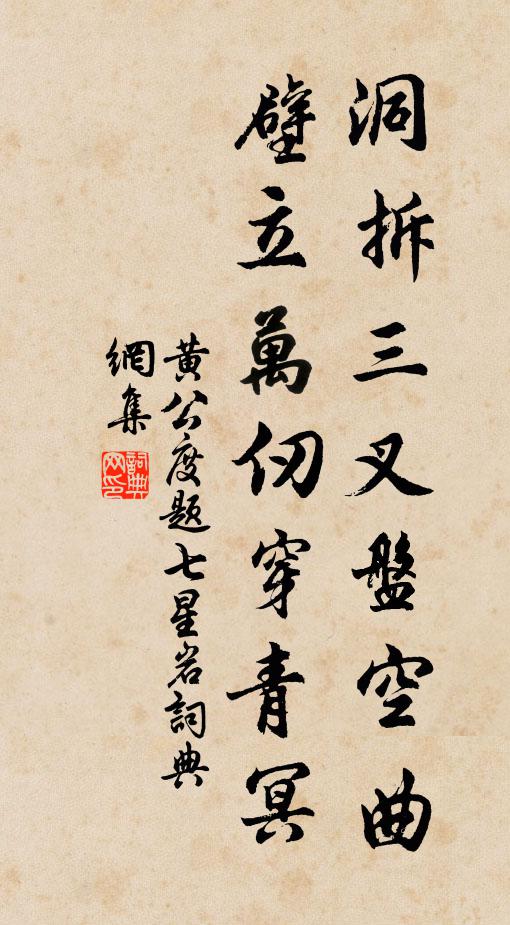 洞拆三叉盤空曲
壁立萬仞穿青冥
黃公度题七星岩詞典
網集
詞典
网印